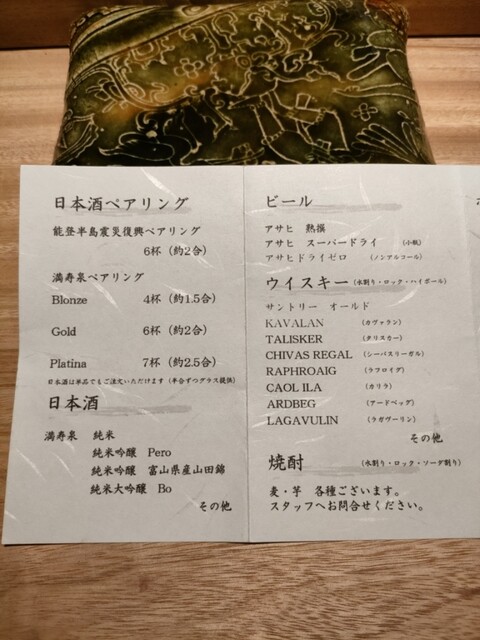 日本酒ペアリング
能登半島震災復興ペアリング
6杯（約2合）
満寿泉ペアリング
Blonze 4杯（約1.5合）
Gold 6杯（約2合）
Platina 7杯（約2.5合）
日本酒は単品でもご注文いただけます（半合ずつグラス提供）
日本酒
満寿泉 純米
純米吟醸 Pero
純米吟醸 富山県産山田錦
純米大吟醸 Bo
その他
ビール
アサヒ 熟撰
アサヒ スーパードライ （小瓶）
アサヒドライゼロ （ノンアルコール）
ウイスキー（水割り・ロック・ハイボール）
サントリー オールド
KAVALAN （カヴァラン）
TALISKER （タリスカー）
CHIVAS REGAL （シーバスリーガル）
RAPHROAIG （ラフロイグ）
CAOL ILA （カリラ）
ARDBEG （アードベッグ）
LAGAVULIN （ラガヴーリン）
その他
焼酎 （水割り・ロック・ソーダ割り）
麦・芋 各種ございます。
スタッフへお問合せください。